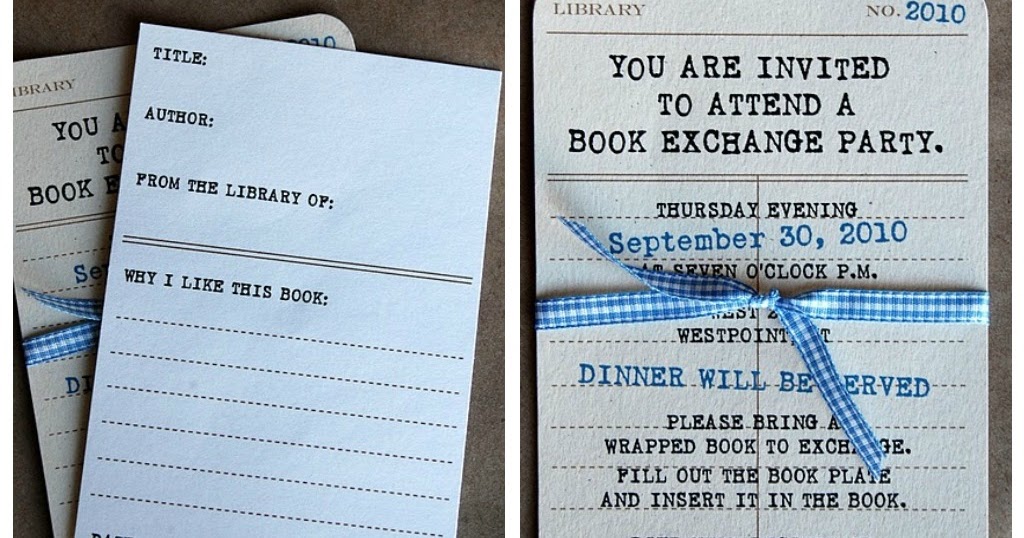 2010
IBRARY
YOU A
TO
BOOK E
Sep
DI
TITLE:
AUTHOR:
FROM THE LIBRARY OF:
WHY I LIKE THIS BOOK:
LIBRARY NO. 2010
YOU ARE INVITED
TO ATTEND A
BOOK EXCHANGE PARTY.
THURSDAY EVENING
September 30, 2010
AT SEVEN O'CLOCK P.M.
WEST
WESTPOINT
DINNER WILL BE SERVED
PLEASE BRING A
WRAPPED BOOK TO EXCHANGE.
FILL OUT THE BOOK PLATE
AND INSERT IT IN THE BOOK.